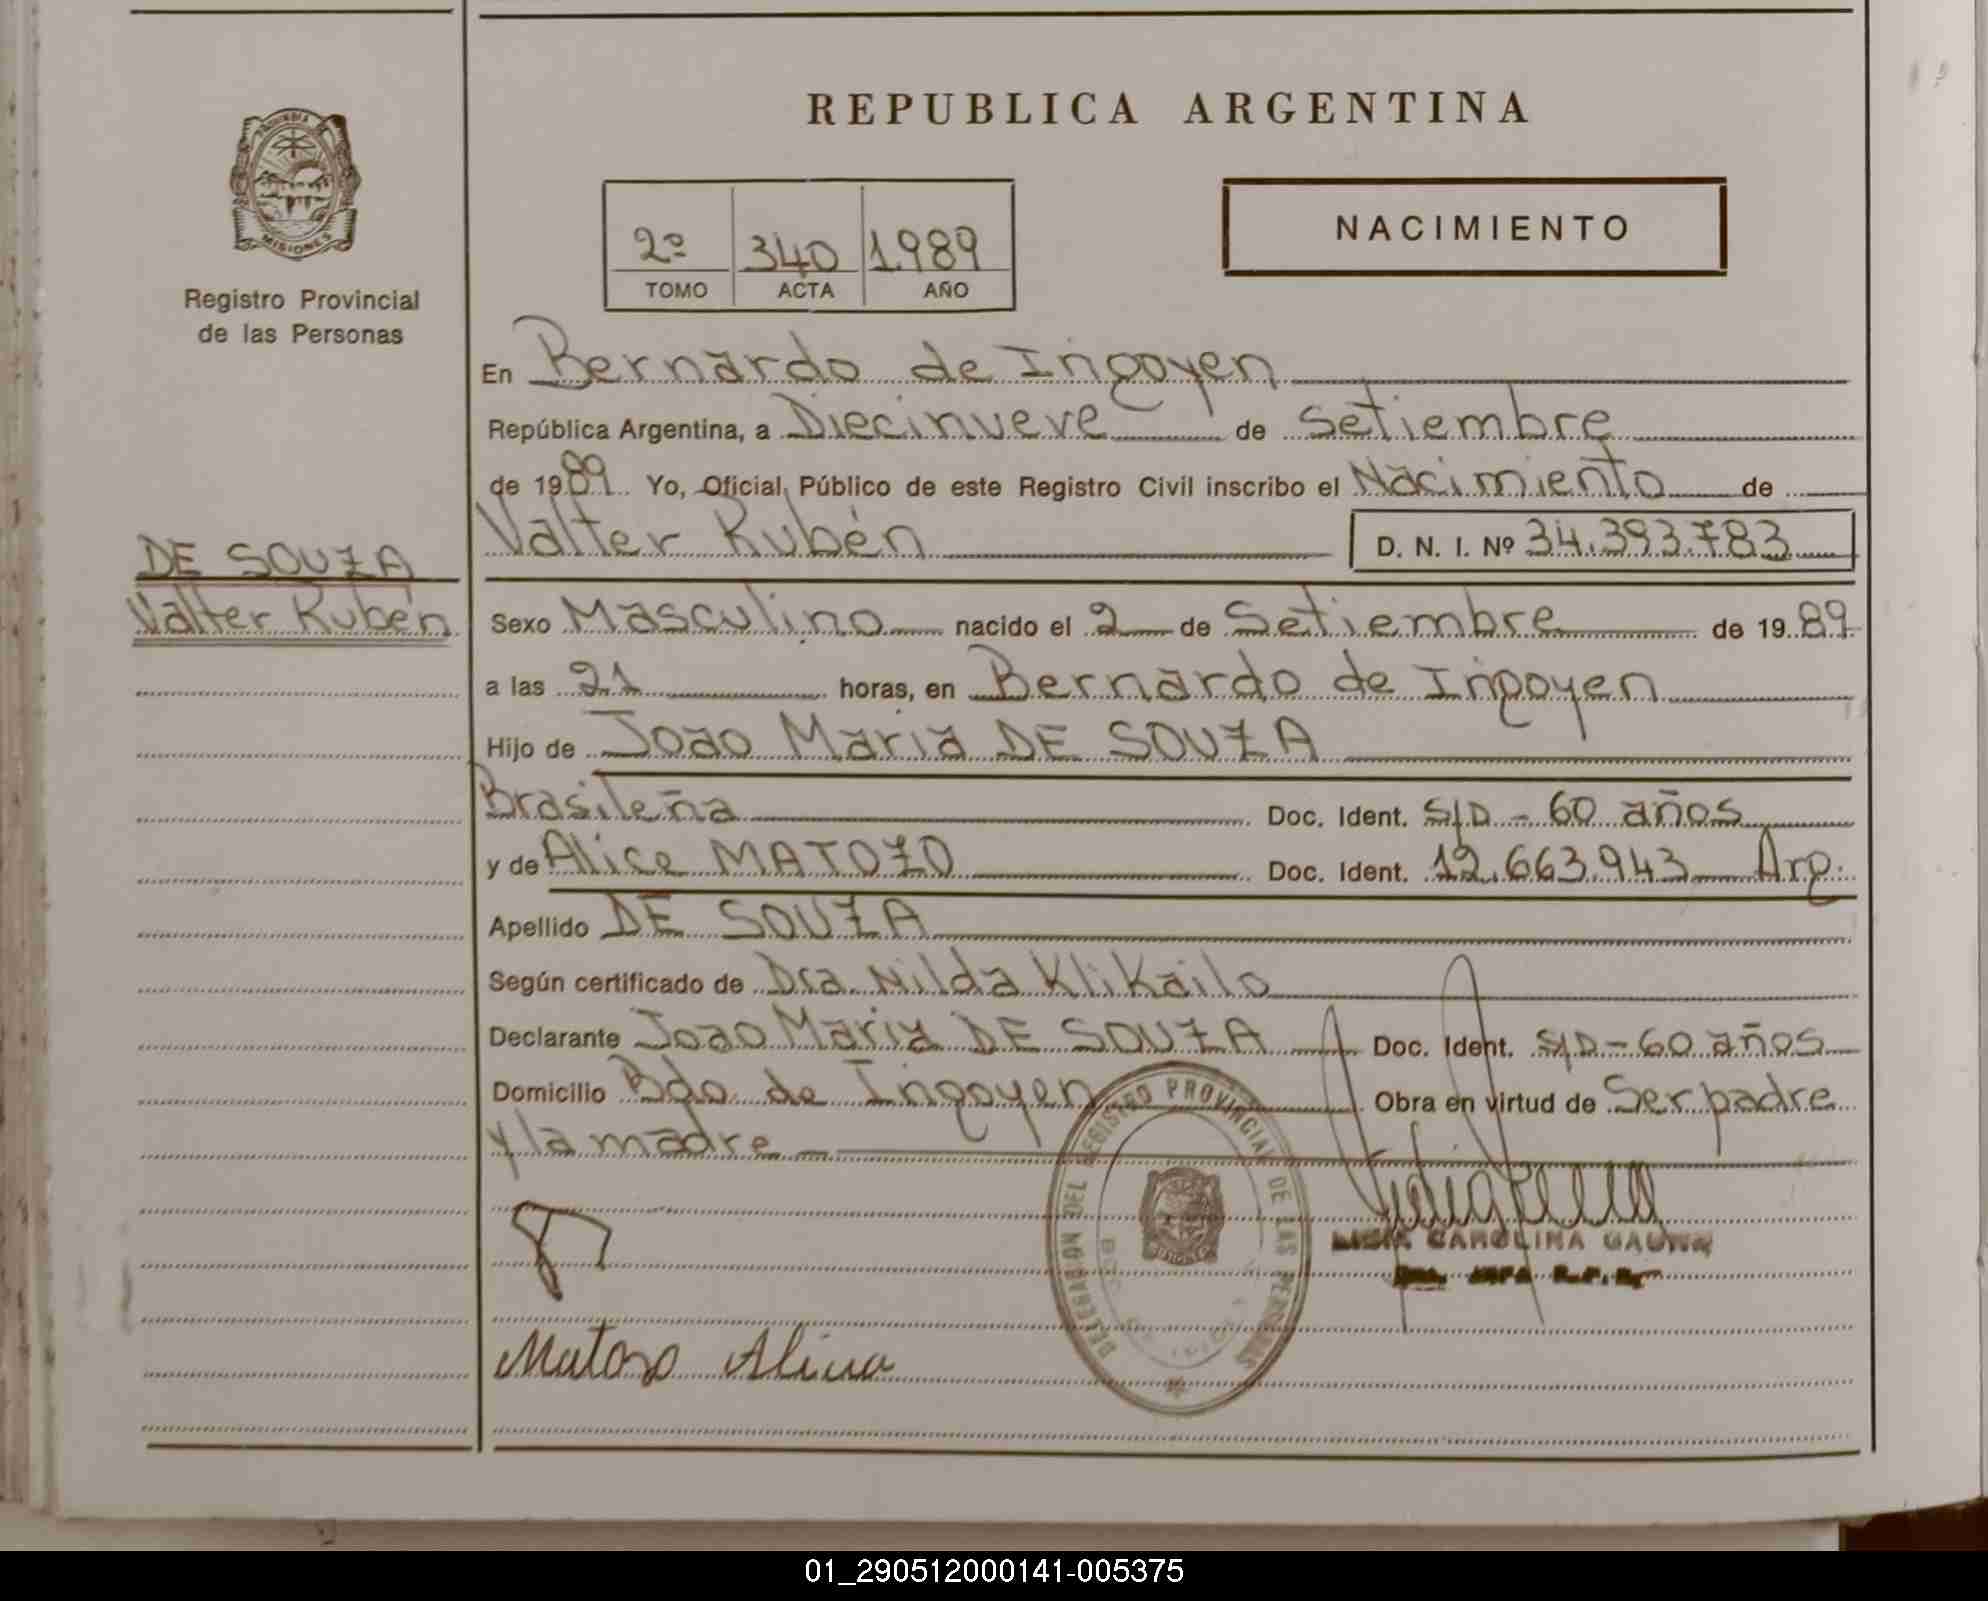 REPUBLICA ARGENTINA
PROVINCIA DE
MISIONES
Registro Provincial
de las Personas
2º 340 1.989
TOMO ACTA AÑO
NACIMIENTO
En Bernardo de Irigoyen
República Argentina, a Diecinueve de Setiembre
de 1989 Yo, Oficial Público de este Registro Civil inscribo el Nacimiento de
Valter Rubén D. N. I. Nº 34.393.783
DE SOUZA
Valter Rubén
Sexo Masculino nacido el 2 de Setiembre de 19.89
a las 21 horas, en Bernardo de Irigoyen
Hijo de Joao Maria DE SOUZA
Brasileña Doc. Ident. S/D - 60 años
y de Alice MATOZO Doc. Ident. 12.663.943 Arg.
Apellido DE SOUZA
Según certificado de Dra. Nilda Klikailo
Declarante Joao Maria DE SOUZA Doc. Ident. S/D - 60 años
Domicilio Bdo. de Irigoyen Obra en virtud de Ser padre
y la madre
DELEGACION DEL REGISTRO PROVINCIAL DE LAS PERSONAS
MISIONES
CAROLINA
R.P.P.
Matoso
01_290512000141-005375